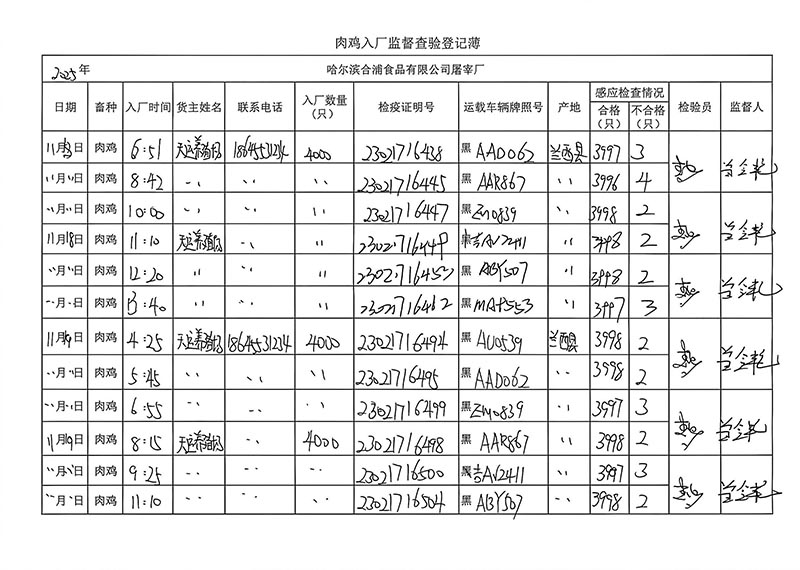 肉鸡入厂监督查验登记薄
2025年 哈尔滨合浦食品有限公司屠宰厂
日期 畜种 入厂时间 货主姓名 联系电话 入厂数量（只） 检疫证明号 运载车辆牌照号 产地 感应检查情况 检验员 监督人
合格（只） 不合格（只）
11月18日 肉鸡 6:51 18645531214 4000 23021716438 黑 AAD062 兰西县 3997 3
11月11日 肉鸡 8:42 〃 〃 〃 23021716445 黑 AAR867 〃 3996 4
11月11日 肉鸡 10:00 〃 〃 〃 23021716447 黑 ZM0839 〃 3998 2
11月18日 肉鸡 11:10 〃 〃 23021716449 吉AV2411 〃 3998 2
11月11日 肉鸡 12:20 〃 〃 〃 23021716453 黑 ABY507 〃 3998 2
肉鸡 3:40 〃 〃 〃 23021716462 黑 MAP553 〃 3997 3
11月19日 肉鸡 4:25 18645531214 4000 23021716494 黑 AU0539 兰西县 3998 2
肉鸡 5:45 〃 〃 〃 23021716495 黑 AAD062 〃 3998 2
肉鸡 6:55 〃 〃 〃 23021716499 黑 ZM0839 〃 3997 3
11月19日 肉鸡 8:15 〃 4000 23021716498 黑 AAR867 〃 3998 2
肉鸡 9:25 〃 〃 〃 23021716500 吉AV2411 〃 3997 3
肉鸡 11:10 〃 〃 〃 23021716504 黑 ABY507 〃 3998 2